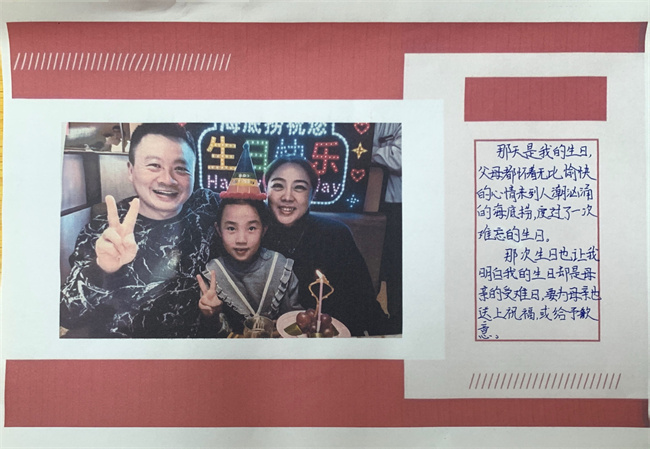 海底捞祝您
生日快乐
那天是我的生日,
父母都怀着无比愉快
的心情来到人潮汹涌
的海底捞,度过了一次
难忘的生日。
那次生日也让我
明白我的生日却是母
亲的受难日,要为母亲也
送上祝福,或给予歉
意。